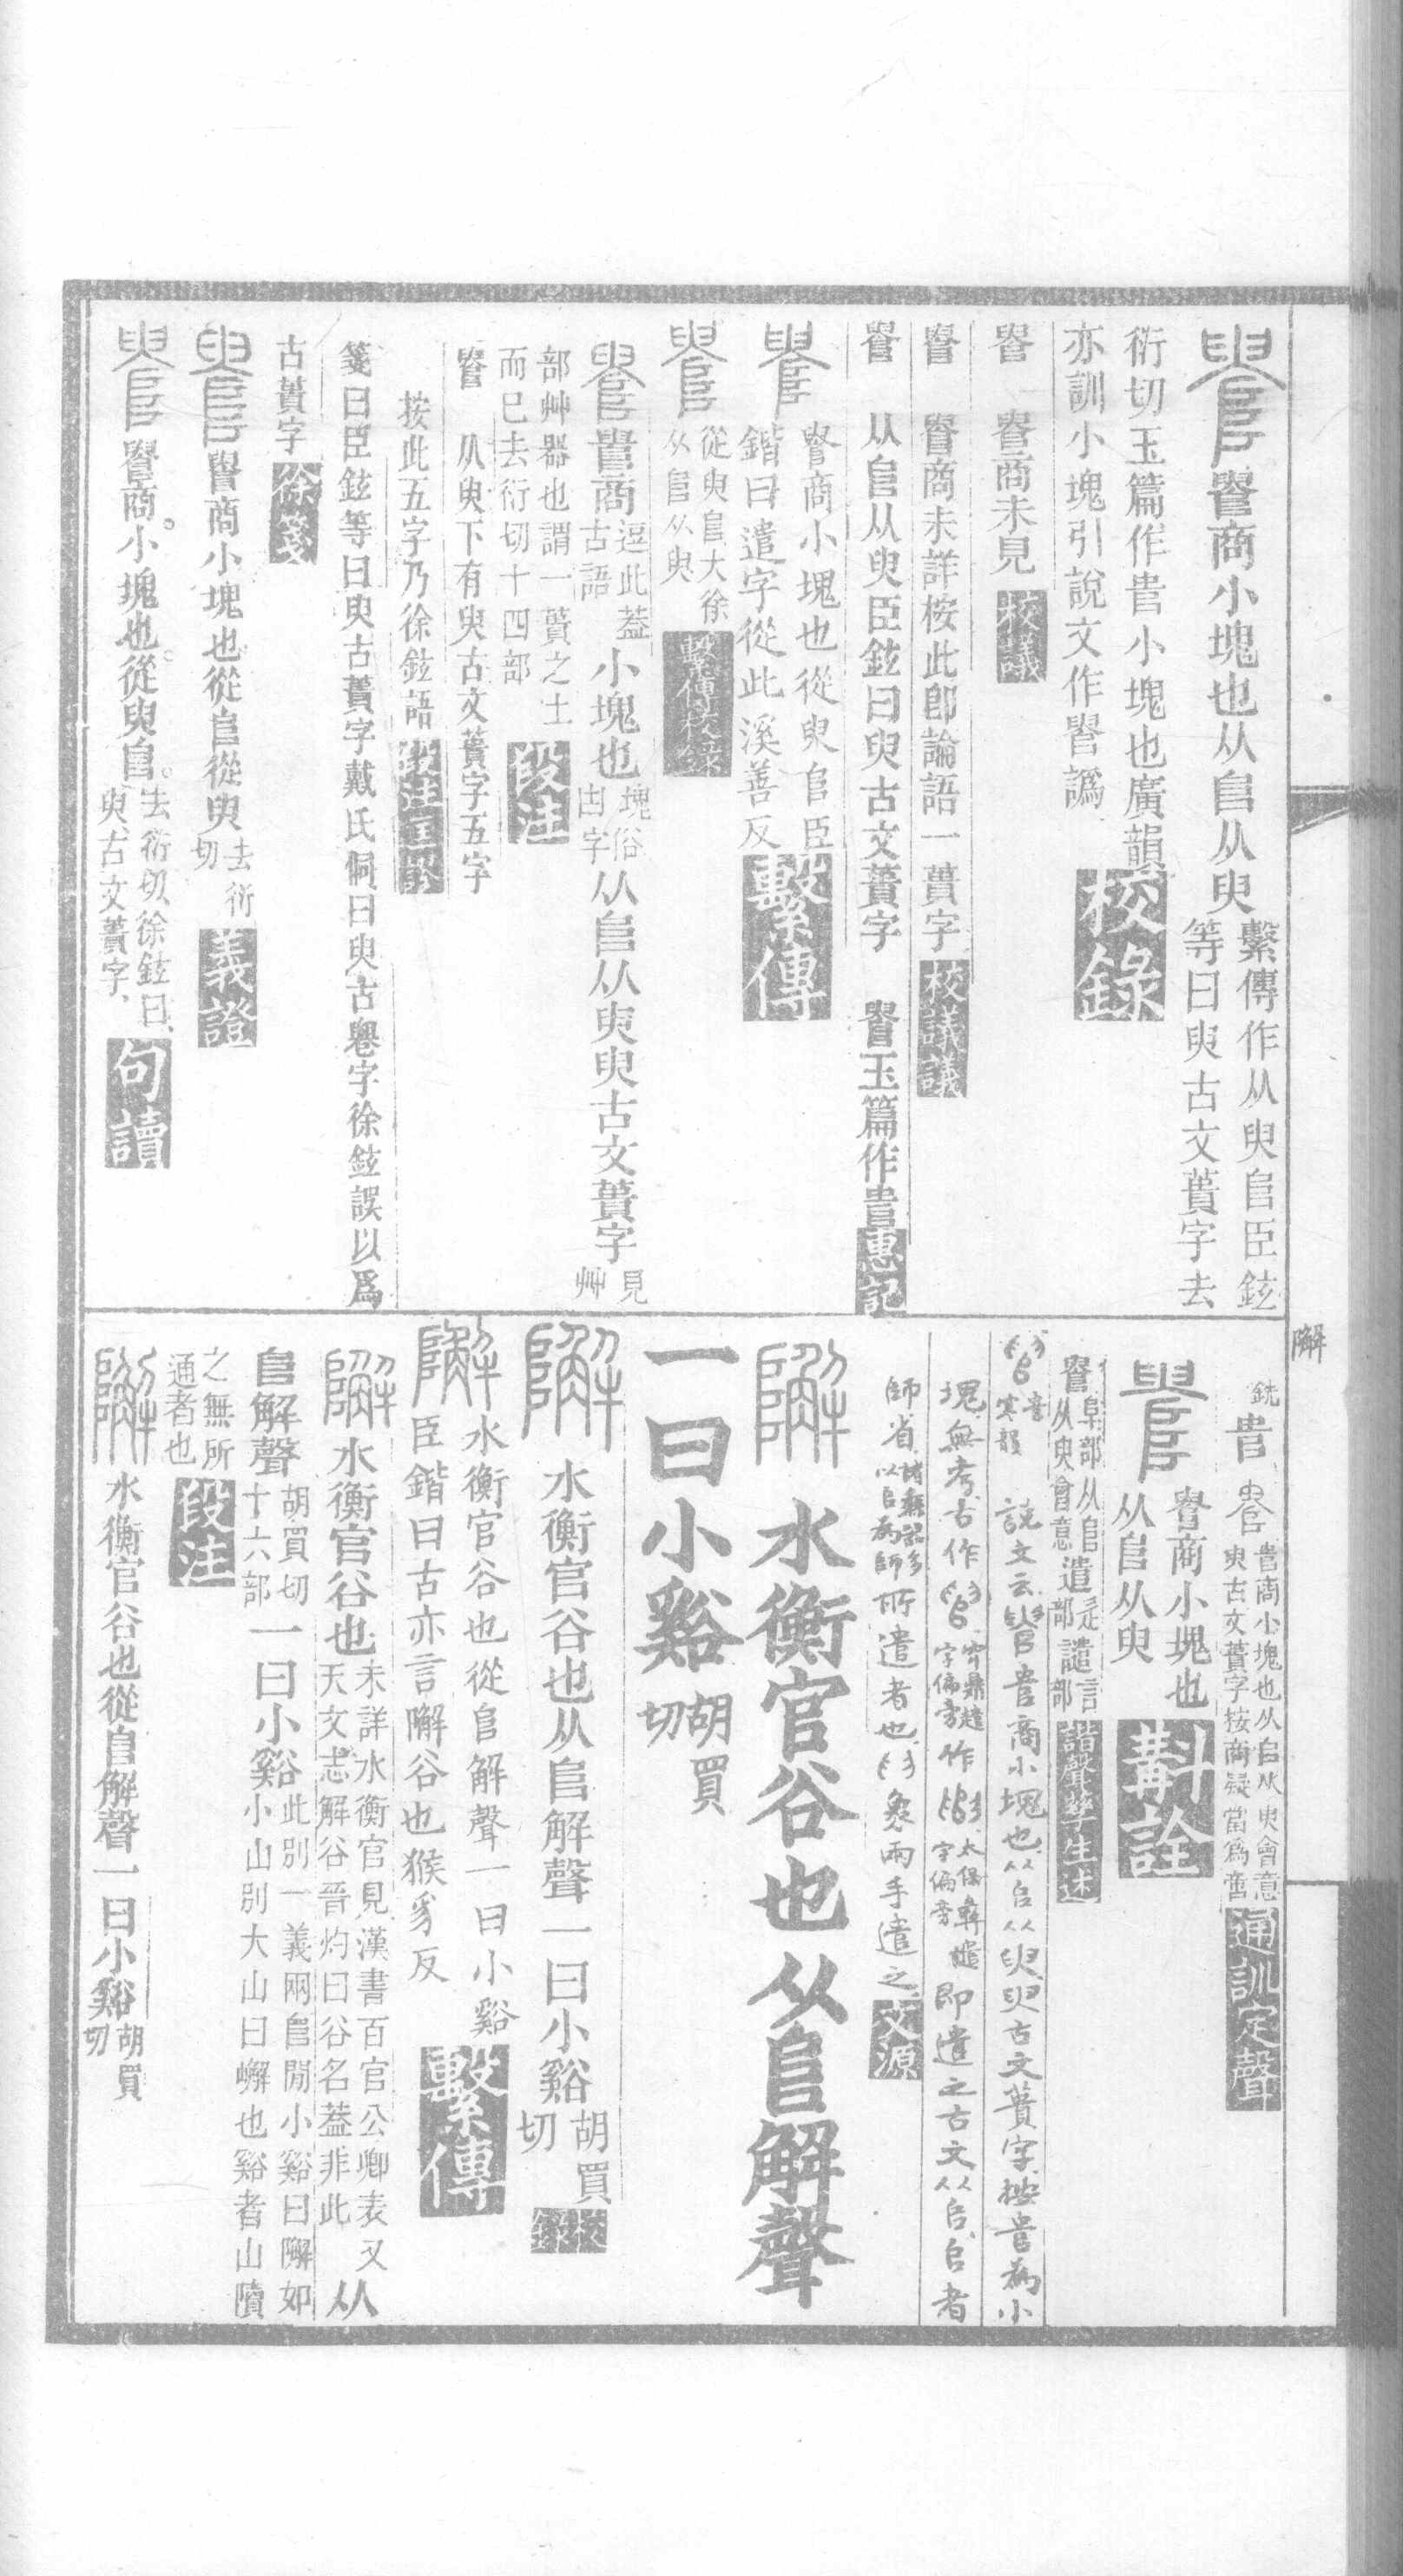 䜝商小塊也从𨸏从臾
繫傳作从臾𨸏臣鉉
等曰臾古文蕢字去
衍切玉篇作𠳋小塊也廣韻
亦訓小塊引說文作䜝譌
校錄
䜝商未見
校議
䜝商未詳桉此卽論語一蕢字
校議議
从𨸏从臾臣鉉曰臾古文蕢字
玉篇作
惠記
商小塊也從臾𨸏臣
鍇曰遣字從此溪善反
繫傳
從臾𨸏大徐
从𨸏从臾
繫傳校錄
商
逗此葢
古語
小塊也
塊俗
凷字
从𨸏从臾臾古文蕢字
見
艸
部艸器也謂一蕢之土
而巳去衍切十四部
段注
从臾下有臾古文蕢字五字
按此五字乃徐鉉語
段注匡謬
箋曰臣鉉等曰臾古蕢字戴氏侗曰臾古䙴字徐鉉誤以爲
古蕢字
徐箋
商小塊也從𨸏從臾
去衍
切
義證
商小塊也從臾𨸏
去衍切徐鉉曰
臾古文蕢字
句讀
𨼬
銑
商小塊也从𨸏从臾會意
臾古文蕢字按商疑當爲
通訓定聲
商小塊也
从𨸏从臾
斠詮
阜部从𨸏
从臾會意
遣
辵部
譴
言部
諧聲孳生述
音
寒韻
說文云
商小塊也从𨸏从臾臾古文蕢字按
爲小
塊無考古作
字偏旁
作
太保彝
字偏旁
卽遣之古文从𨸏𨸏者
師省
諸彝器多
以𨸏爲師
所遣者也
象兩手遣之
文源
𨼬
水衡官谷也从𨸏解聲
一曰小谿
胡買
切
水衡官谷也从𨸏解聲一曰小谿
胡買
切
校錄
水衡官谷也從𨸏解聲一曰小谿
臣鍇曰古亦言𨼬谷也猴豸反
繫傳
水衡官谷也
未詳水衡官見漢書百官公卿表又
天文志解谷晉灼曰谷名葢非此
从
𨸏解聲
胡買切
十六部
一曰小谿
此別一義兩𨸏閒小谿曰𨼬如
小山別大山曰嶰也谿者山隫
之無所
通者也
段注
水衡官谷也從𨸏解聲一曰小谿
胡買
切